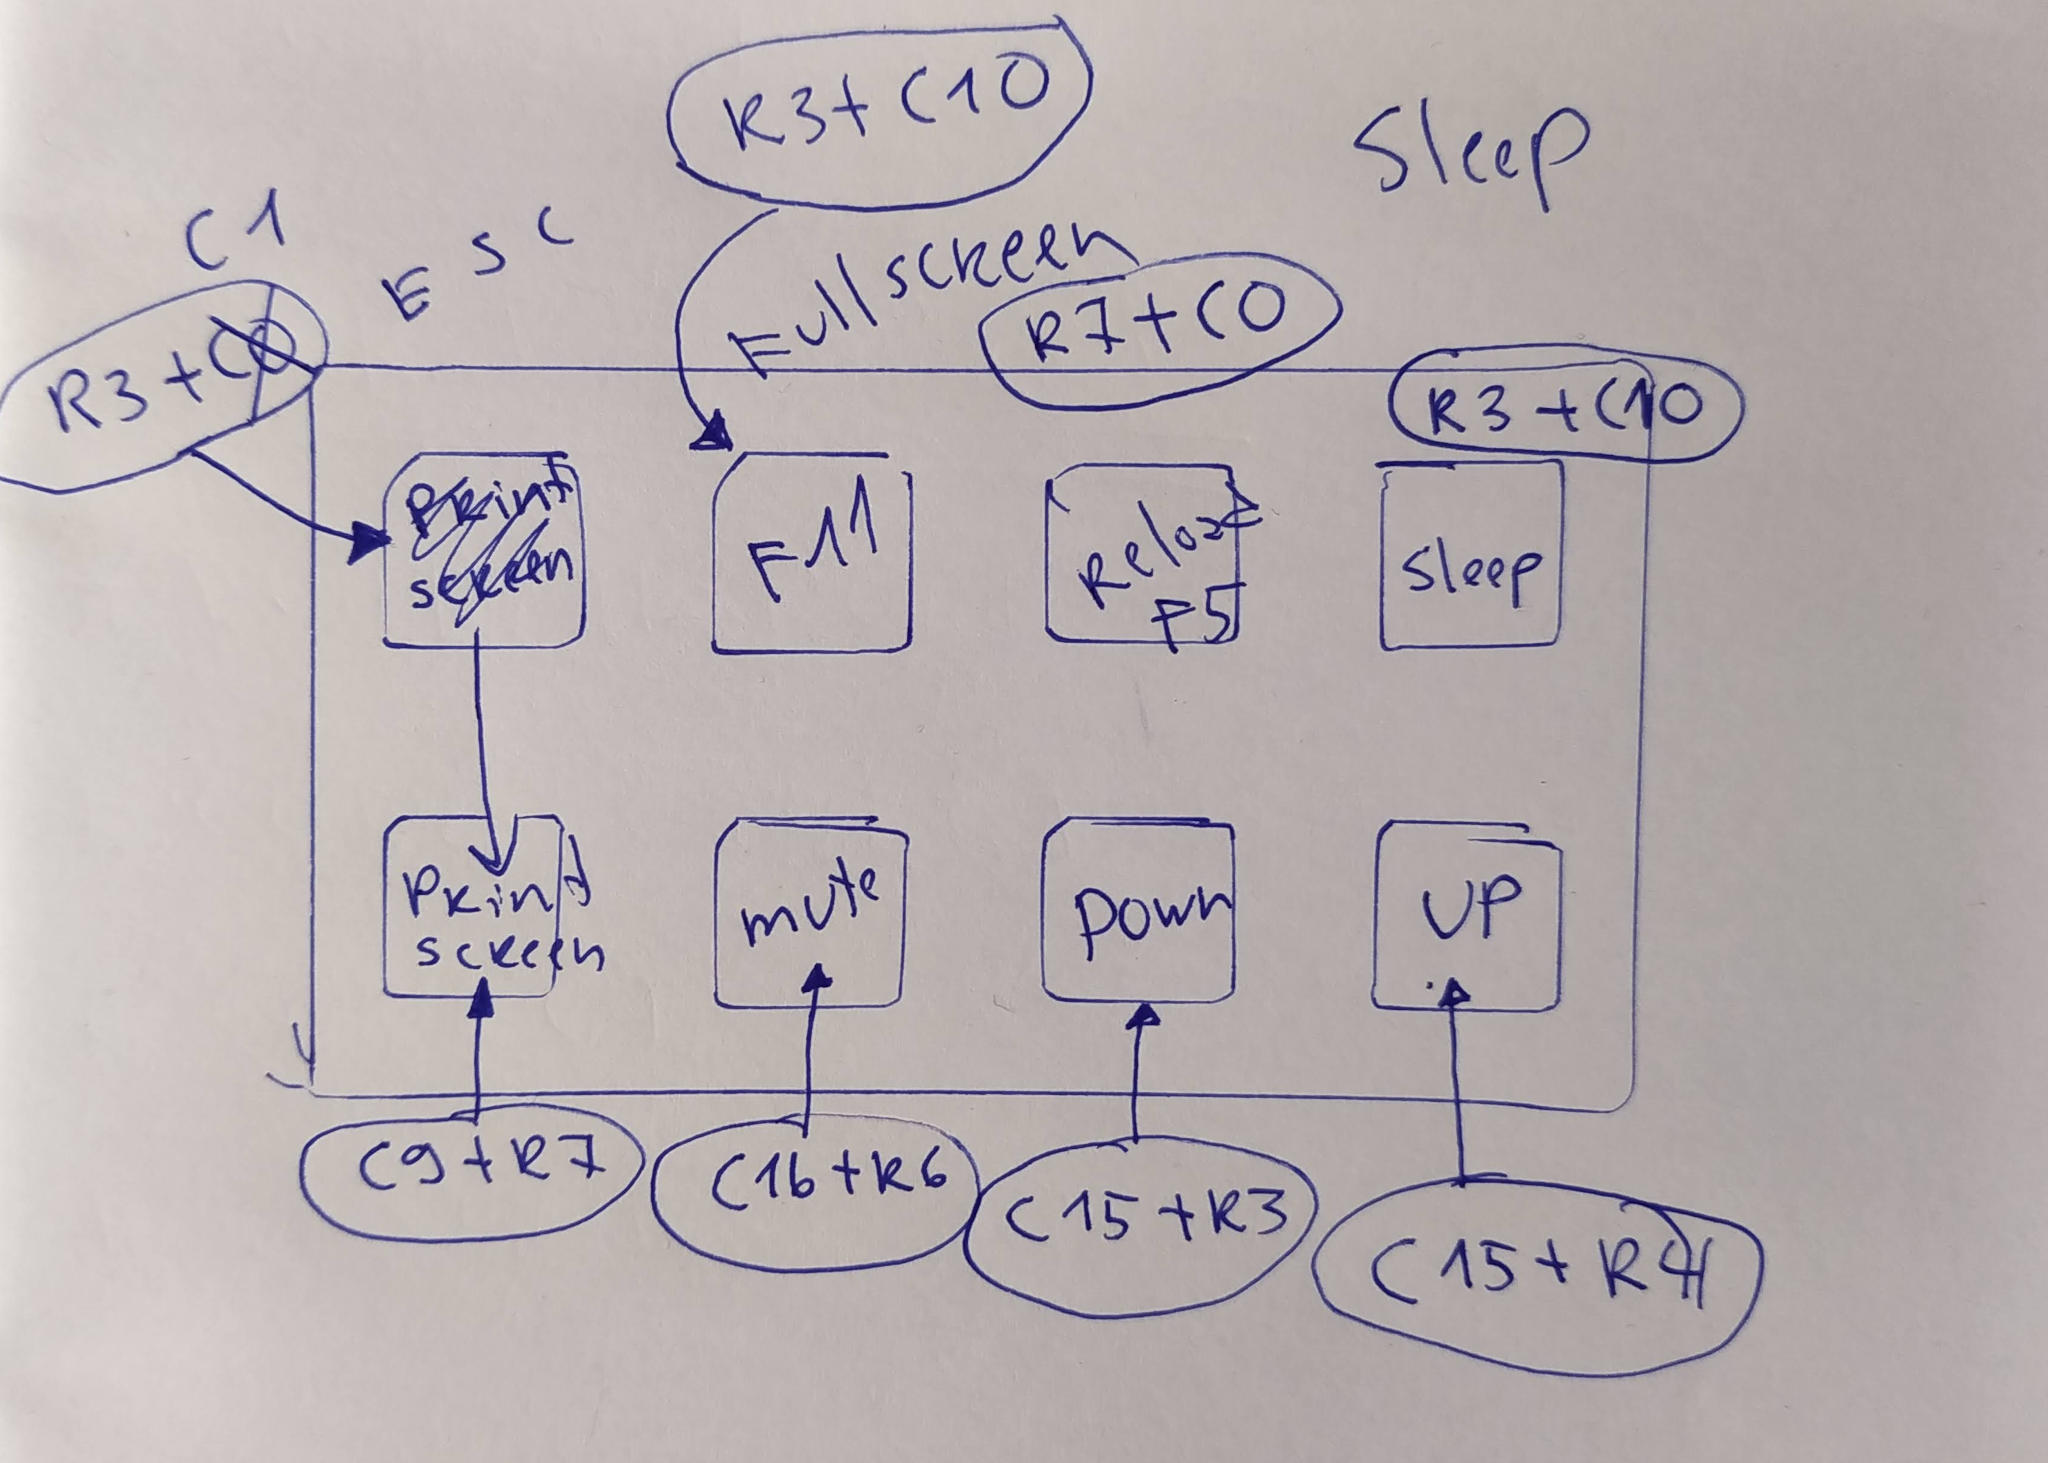 R3+C10
Sleep
C1
ESC
Fullscreen
R7+C0
R3+C0
R3+C10
Print
screen
F11
Reload
F5
Sleep
Print
screen
mute
Down
UP
C9+R7
C16+R6
C15+R3
C15+R4